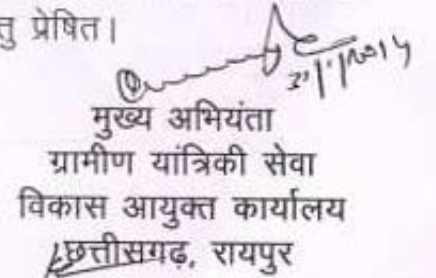 तु प्रेषित।
मुख्य अभियंता
ग्रामीण यांत्रिकी सेवा
विकास आयुक्त कार्यालय
छत्तीसगढ़, रायपुर